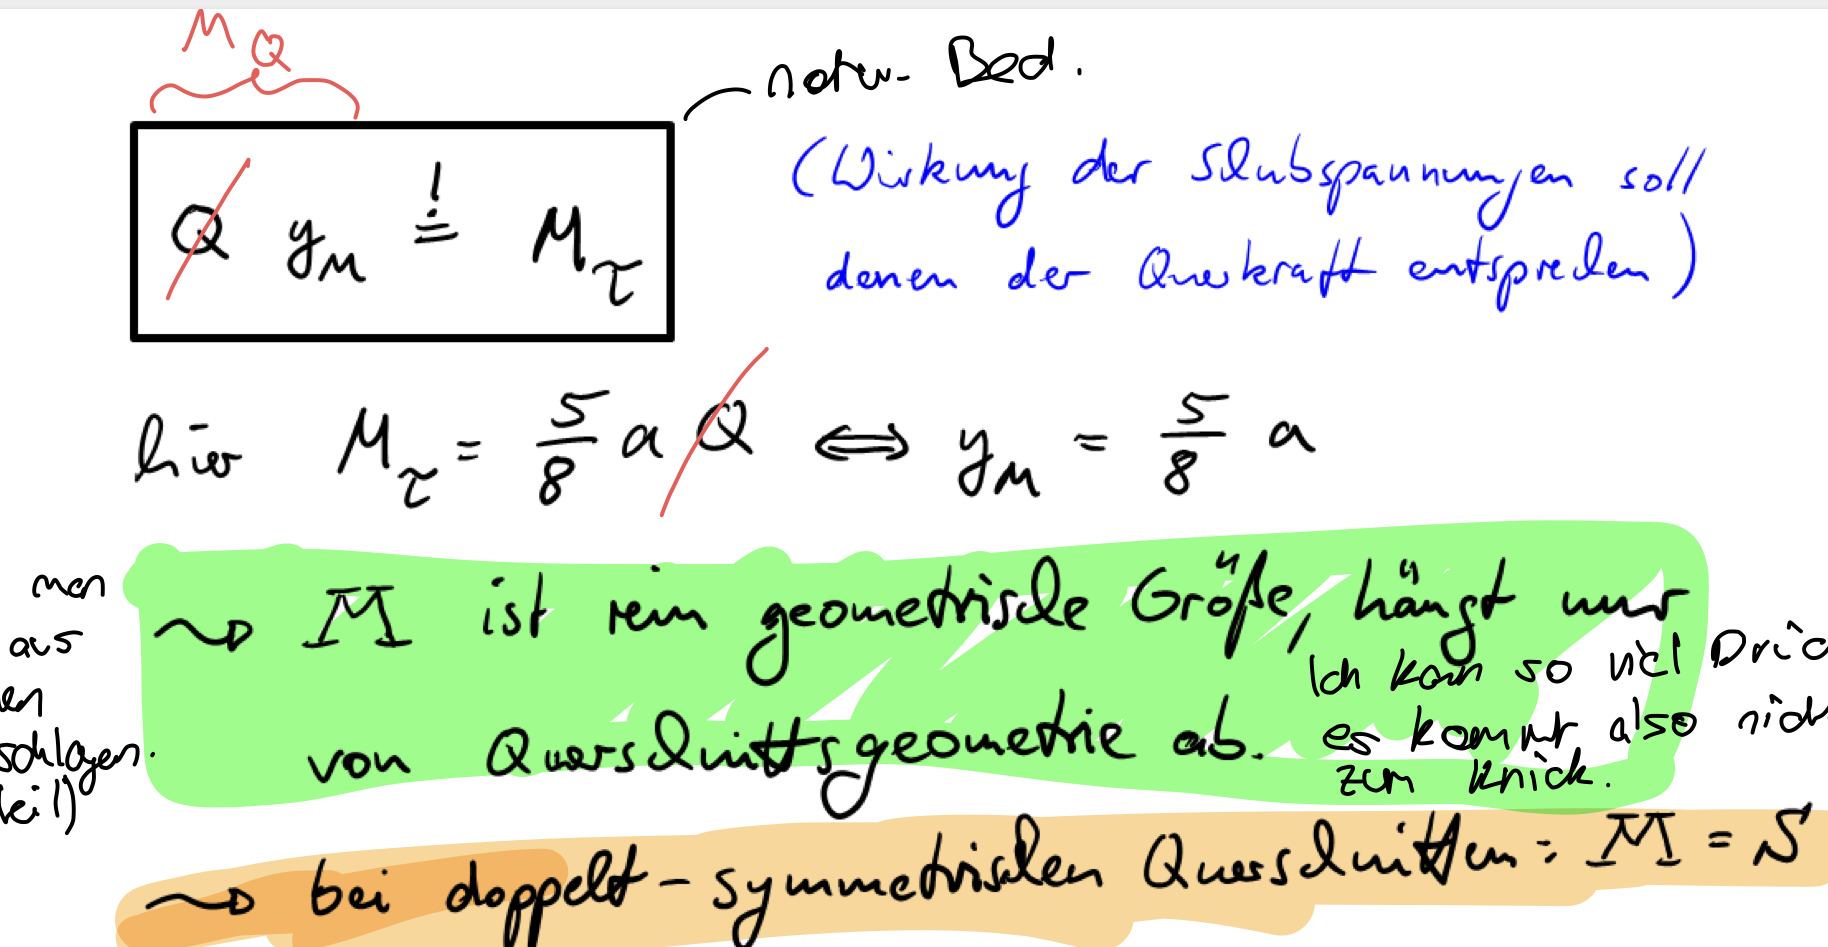 M_Q
notw. Bed.
Q y_M != M_τ
(Wirkung der Schubspannungen soll
denen der Querkraft entsprechen)
hier M_τ = 5/8 a Q ⟺ y_M = 5/8 a
man
aus
en
schlagen.
eil)
⇝ M ist rein geometrische Größe, hängt nur
von Querschnittsgeometrie ab.
Ich kann so viel
es kommt also
zum Knick.
⇝ bei doppelt-symmetrischen Querschnitten: M = S